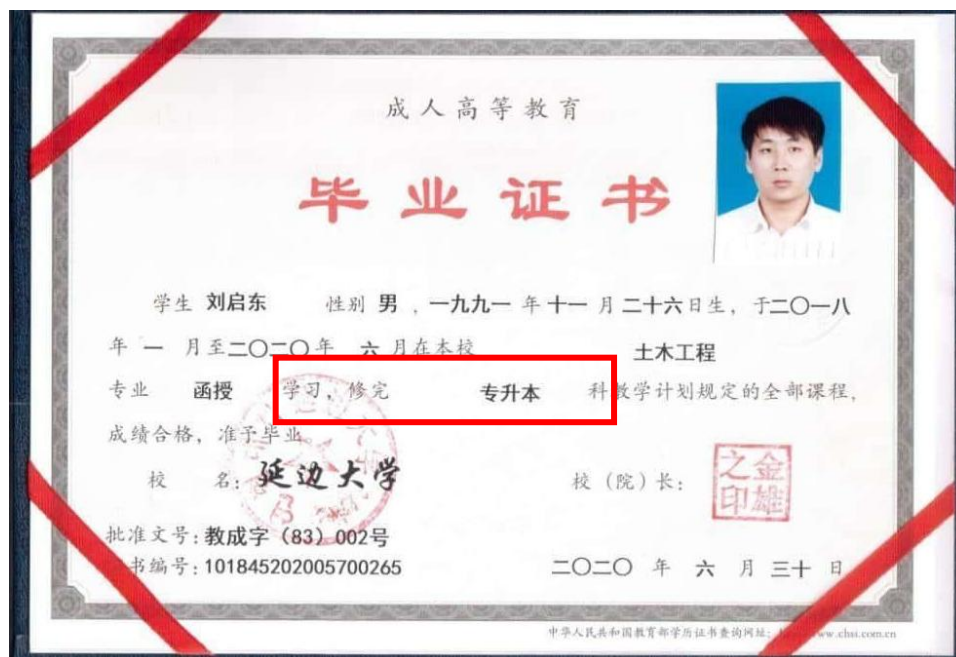 成人高等教育
毕业证书
学生 刘启东 性别 男 , 一九九一 年 十一 月 二十六 日生, 于二〇一八
年 一 月至二〇二〇年 六 月在本校 土木工程
专业 函授 学习, 修完 专升本 科教学计划规定的全部课程,
成绩合格, 准予毕业
校 名: 延边大学 校(院)长: 金雄之印
批准文号: 教成字(83)002号
书编号: 101845202005700265 二〇二〇 年 六 月 三十 日
中华人民共和国教育部学历证书查询网址: www.chsi.com.cn